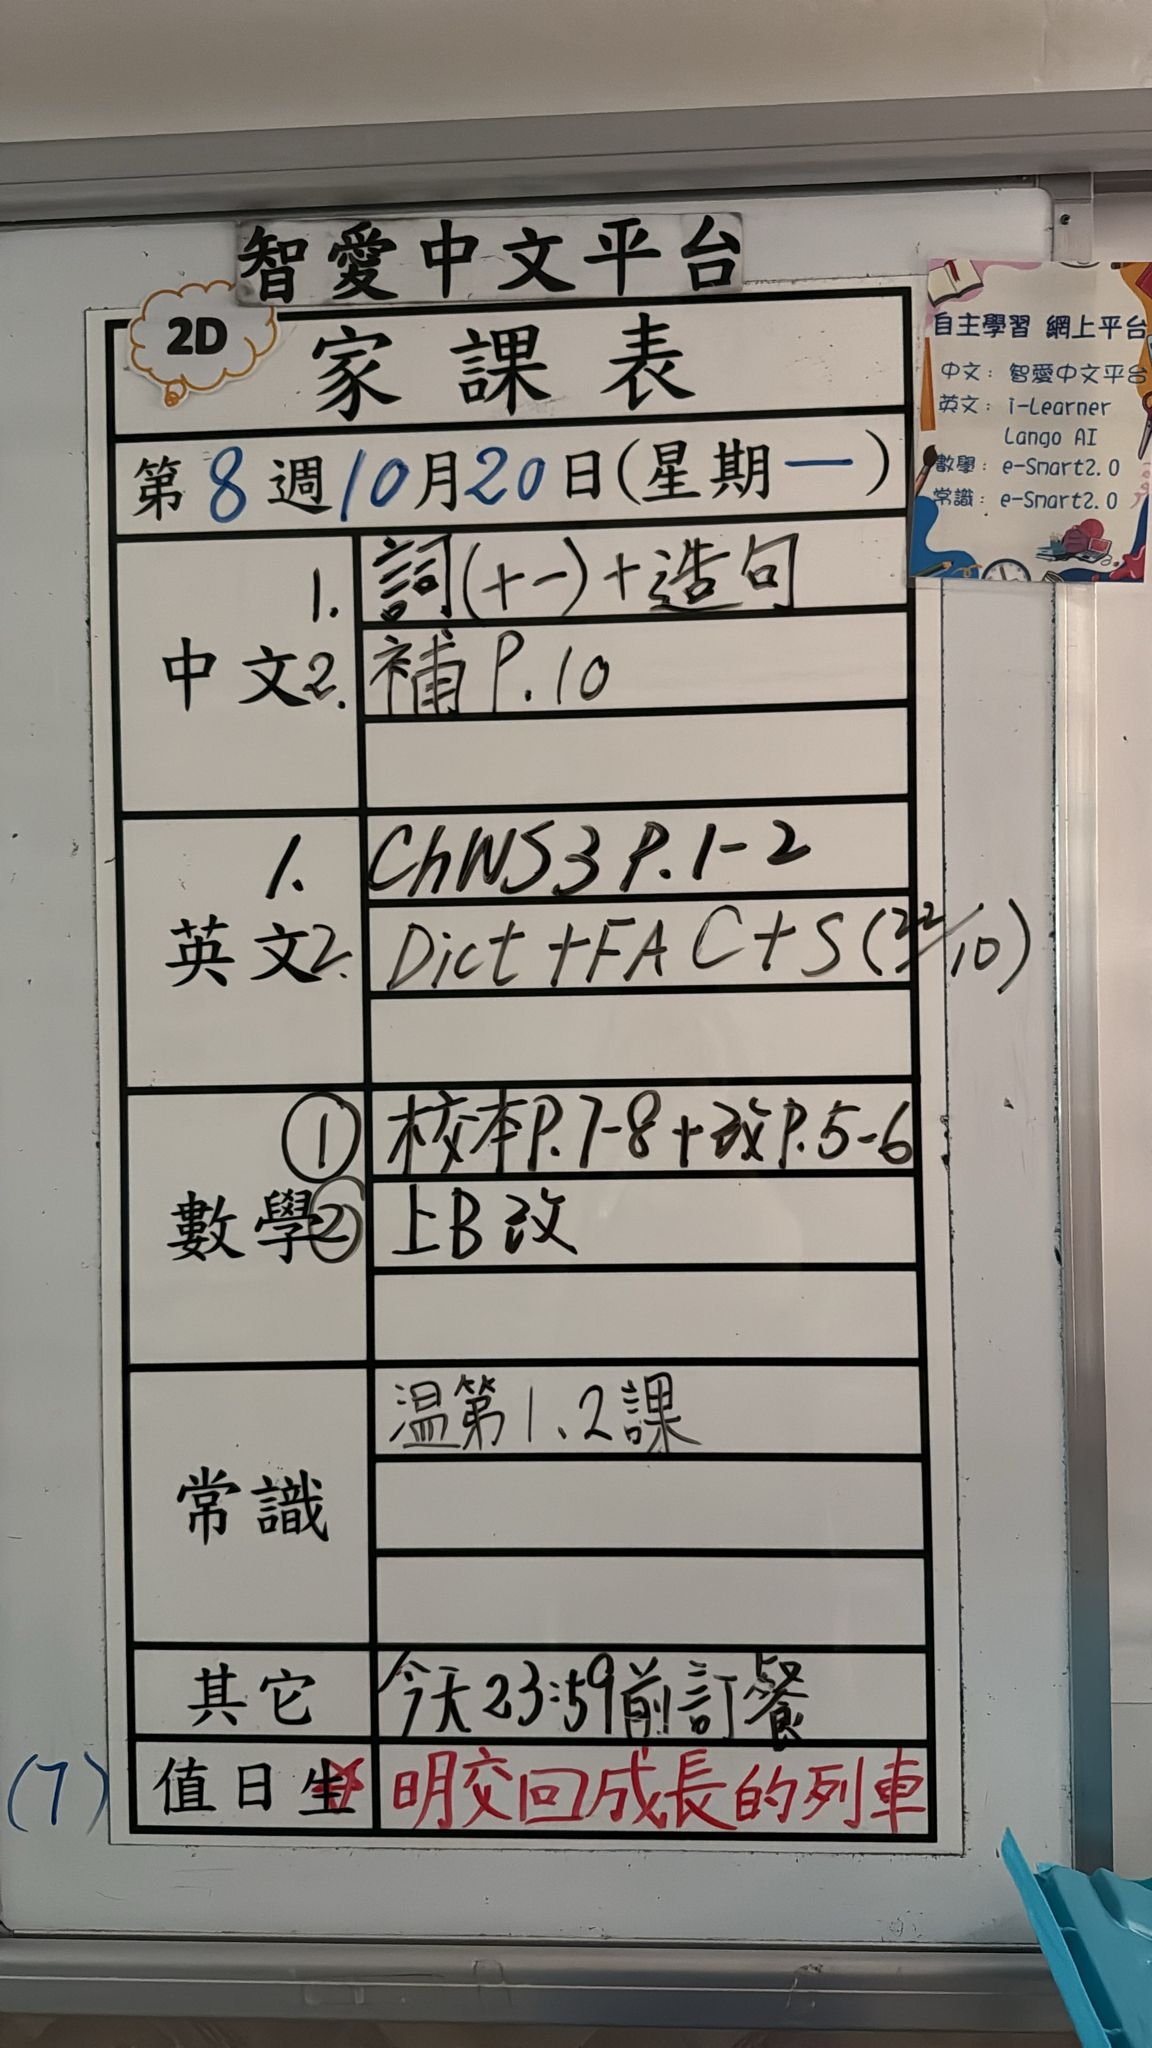 智愛中文平台
2D
家課表
第8週10月20日(星期一)
中文
1. 詞(十一)+造句
2. 補P.10
英文
1. ChWS3 P.1-2
2. Dict+FA C+S(22/10)
數學
① 校本P.7-8+改P.5-6
② 上B改
常識
温第1、2課
其它
今天23:59前訂餐
(7)
值日生
明交回成長的列車
自主學習 網上平台
中文：智愛中文平台
英文：i-Learner
Lango AI
數學：e-Smart2.0
常識：e-Smart2.0